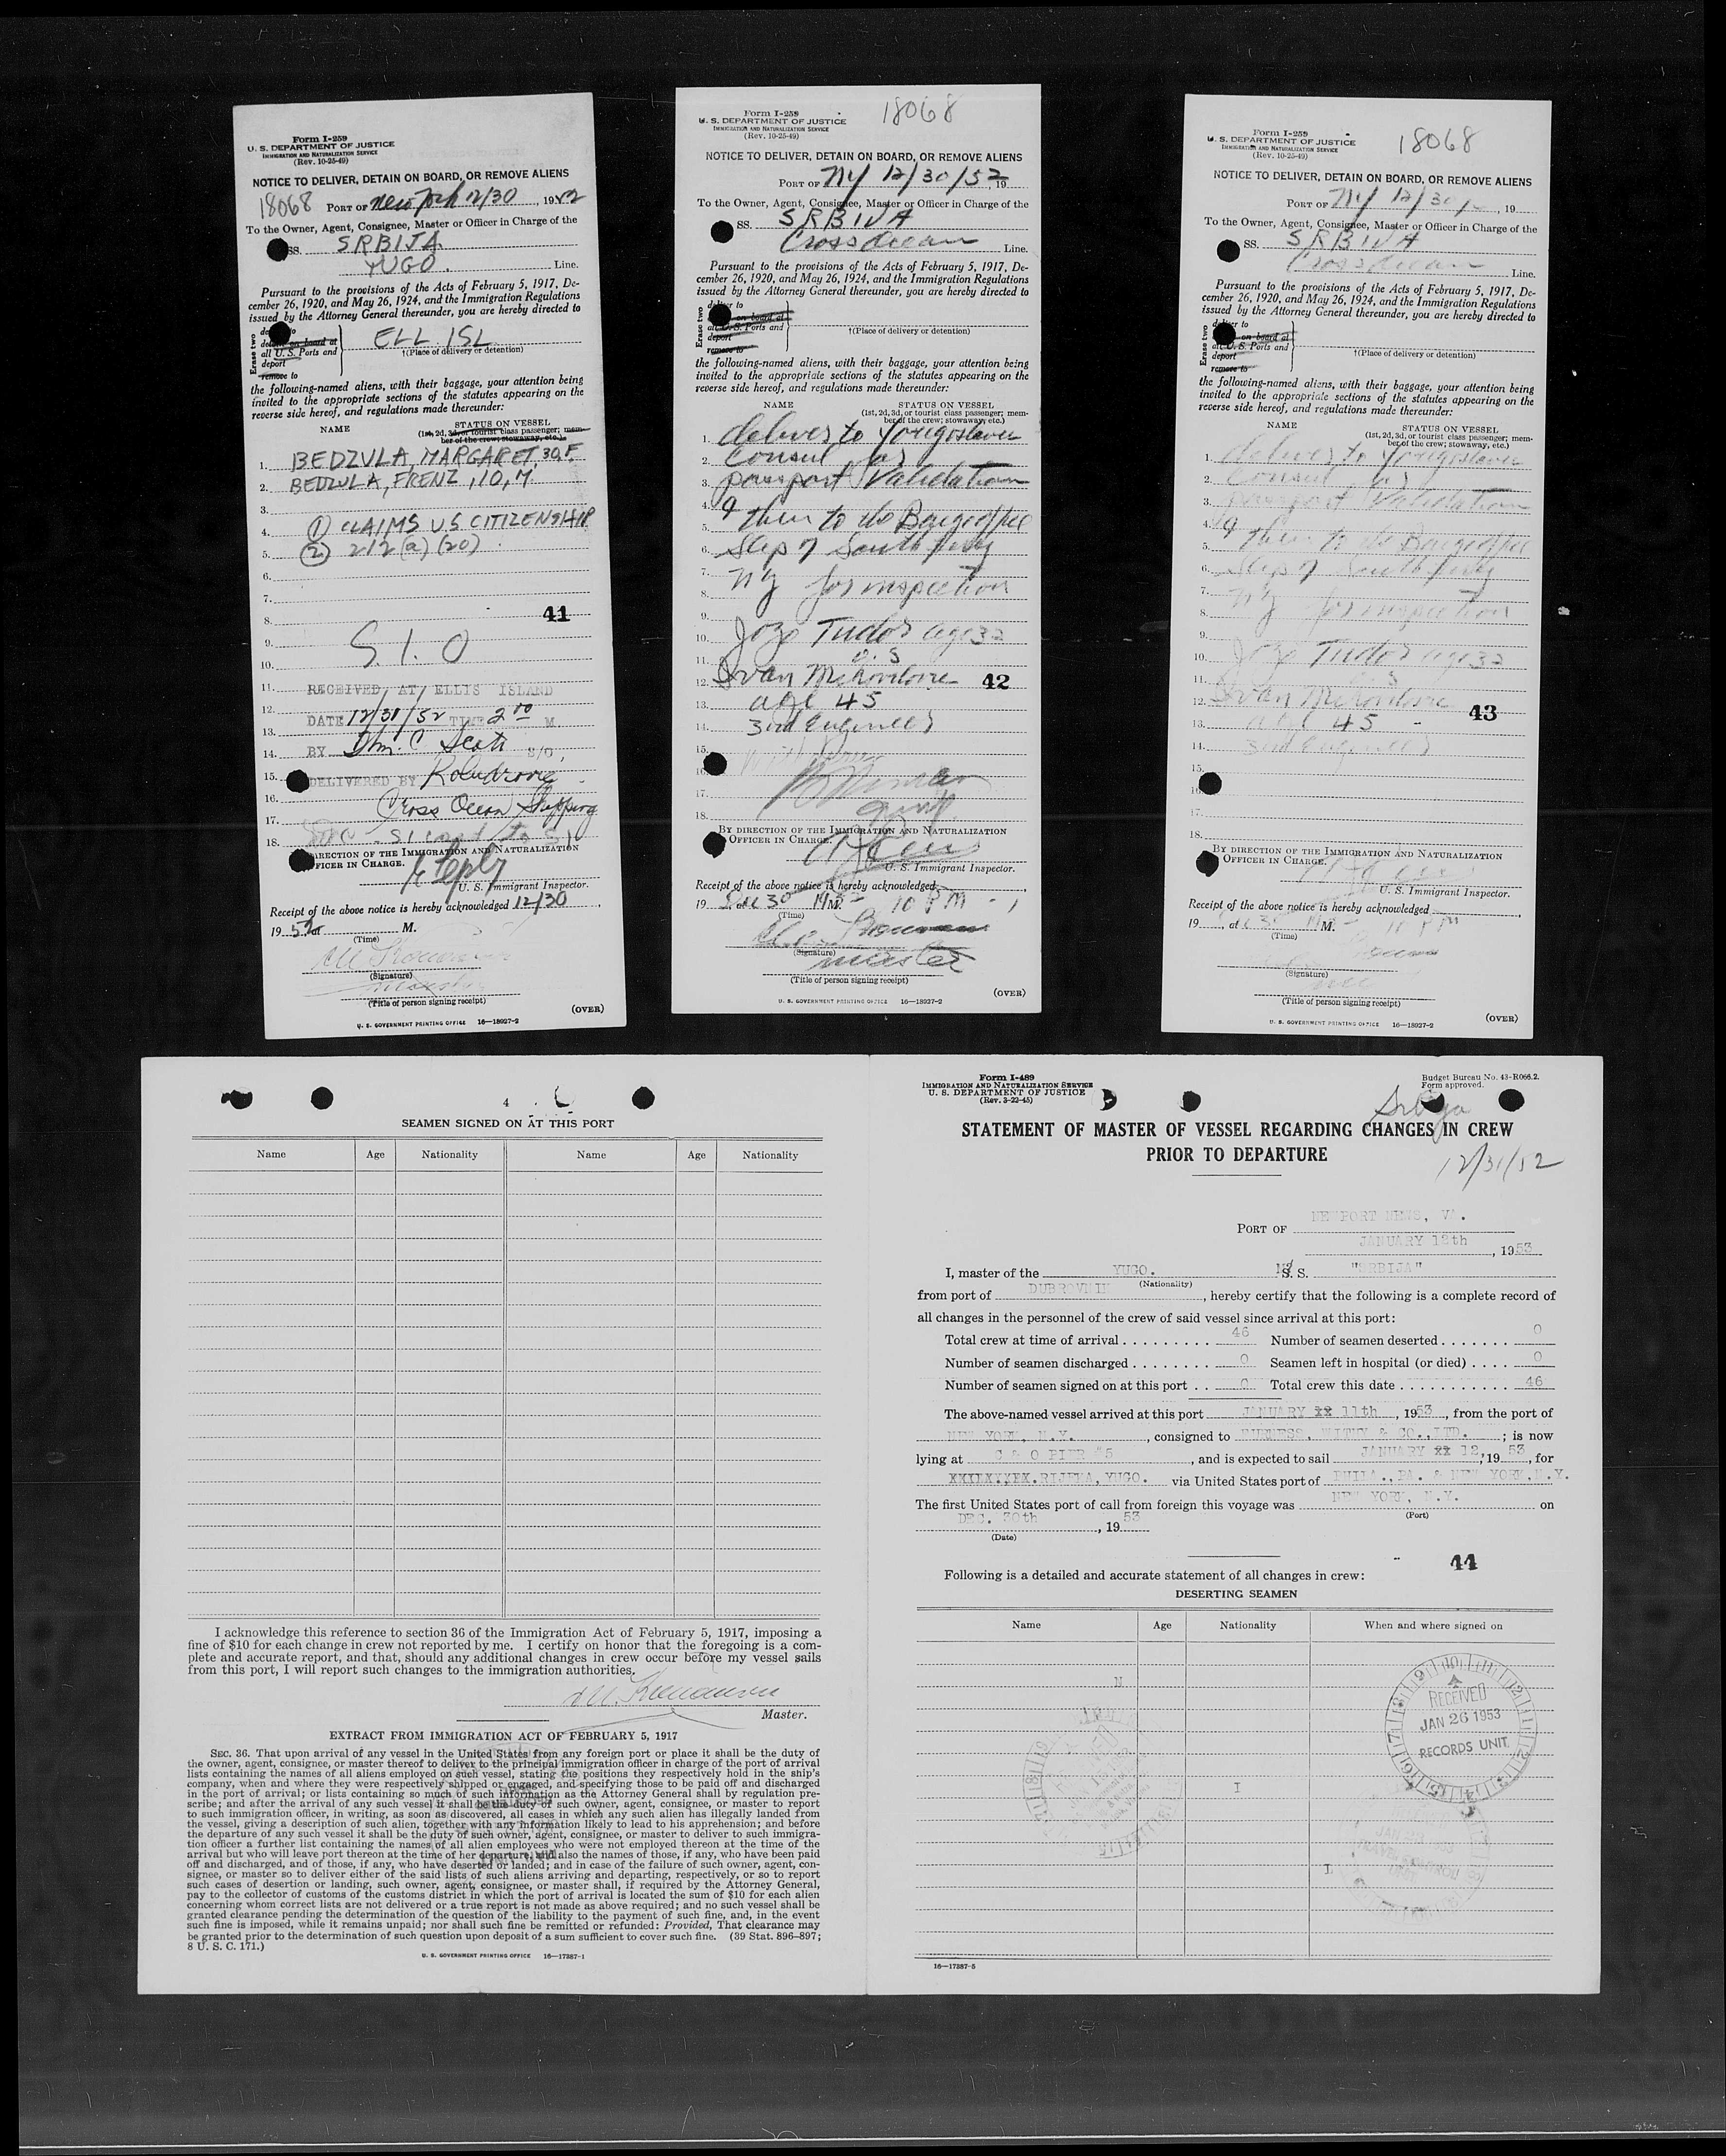 Form I-259
U. S. DEPARTMENT OF JUSTICE
IMMIGRATION AND NATURALIZATION SERVICE
(Rev. 10-25-49)
NOTICE TO DELIVER, DETAIN ON BOARD, OR REMOVE ALIENS
18068 PORT OF New York 12/30, 1952
To the Owner, Agent, Consignee, Master or Officer in Charge of the
SS. SRBIJA
YUGO. Line.
Pursuant to the provisions of the Acts of February 5, 1917, De-
cember 26, 1920, and May 26, 1924, and the Immigration Regulations
issued by the Attorney General thereunder, you are hereby directed to
Erase two
detain on board at
all U. S. Ports and
deport
remove to
ELL. ISL
†(Place of delivery or detention)
the following-named aliens, with their baggage, your attention being
invited to the appropriate sections of the statutes appearing on the
reverse side hereof, and regulations made thereunder:
NAME STATUS ON VESSEL
(1st, 2d, 3d, or tourist class passenger; mem-
ber of the crew; stowaway, etc.)
1. BEDZULA, MARGARET, 30, F.
2. BEDZULA, FRENZ, 10, M.
3.
4. (1) CLAIMS US CITIZENSHIP
5. (2) 212 (a) (20)
6.
7.
8. 41
9.
10. S. I. O
11. RECEIVED AT ELLIS ISLAND
12. DATE 12/30/52 TIME 2 00 M
13.
14. BY Wm. C S/O,
15. DELIVERED BY
16. Cross Ocean Shipping
17.
18.
DIRECTION OF THE IMMIGRATION AND NATURALIZATION
OFFICER IN CHARGE.
U. S. Immigrant Inspector.
Receipt of the above notice is hereby acknowledged 12/30,
1952 at M.
(Time)
(Signature)
(Title of person signing receipt)
(OVER)
U. S. GOVERNMENT PRINTING OFFICE 16—18927-2
Form I-259
18068
U. S. DEPARTMENT OF JUSTICE
IMMIGRATION AND NATURALIZATION SERVICE
(Rev. 10-25-49)
NOTICE TO DELIVER, DETAIN ON BOARD, OR REMOVE ALIENS
PORT OF NY 12/30/52, 19
To the Owner, Agent, Consignee, Master or Officer in Charge of the
SS. SRBIVA
Cross Ocean Line.
Pursuant to the provisions of the Acts of February 5, 1917, De-
cember 26, 1920, and May 26, 1924, and the Immigration Regulations
issued by the Attorney General thereunder, you are hereby directed to
Erase two
deliver to
on board at
all U. S. Ports and
deport
remove to
†(Place of delivery or detention)
the following-named aliens, with their baggage, your attention being
invited to the appropriate sections of the statutes appearing on the
reverse side hereof, and regulations made thereunder:
NAME STATUS ON VESSEL
(1st, 2d, 3d, or tourist class passenger; mem-
ber of the crew; stowaway, etc.)
1. deliver to Yougoslavee
2. Consul for
3. passport Validation
4. & then to the Bargeoffice
5.
6. Slip 7 South ferry
7. NY for inspection
8.
9.
10. Jozo Tudor age 32
11. O. S
12. Ivan 42
13. age 45
14. 3rd Engineer
15.
16.
17.
18.
BY DIRECTION OF THE IMMIGRATION AND NATURALIZATION
OFFICER IN CHARGE.
U. S. Immigrant Inspector.
Receipt of the above notice is hereby acknowledged
19 Dec 30 M. 10 PM
(Time)
(Signature)
master
(Title of person signing receipt)
(OVER)
U. S. GOVERNMENT PRINTING OFFICE 16—18927-2
Form I-259
18068
U. S. DEPARTMENT OF JUSTICE
IMMIGRATION AND NATURALIZATION SERVICE
(Rev. 10-25-49)
NOTICE TO DELIVER, DETAIN ON BOARD, OR REMOVE ALIENS
PORT OF NY 12/30/, 19
To the Owner, Agent, Consignee, Master or Officer in Charge of the
SS. SRBIVA
Cross Ocean Line.
Pursuant to the provisions of the Acts of February 5, 1917, De-
cember 26, 1920, and May 26, 1924, and the Immigration Regulations
issued by the Attorney General thereunder, you are hereby directed to
Erase two
deliver to
on board at
all U. S. Ports and
deport
remove to
†(Place of delivery or detention)
the following-named aliens, with their baggage, your attention being
invited to the appropriate sections of the statutes appearing on the
reverse side hereof, and regulations made thereunder:
NAME STATUS ON VESSEL
(1st, 2d, 3d, or tourist class passenger; mem-
ber of the crew; stowaway, etc.)
1. deliver to Yougoslavee
2. Consul for
3. passport Validation
4. & then to the Bargeoffice
5.
6. Slip 7 South ferry
7. NY for inspection
8.
9.
10. Jozo Tudor age 32
11. S
12. Ivan
13. age 45 43
14. 3rd Engineer
15.
17.
18.
BY DIRECTION OF THE IMMIGRATION AND NATURALIZATION
OFFICER IN CHARGE.
U. S. Immigrant Inspector.
Receipt of the above notice is hereby acknowledged
19, at M. 10 PM
(Time)
(Signature)
(Title of person signing receipt)
(OVER)
U. S. GOVERNMENT PRINTING OFFICE 16—18927-2
4
SEAMEN SIGNED ON AT THIS PORT
Name Age Nationality Name Age Nationality
I acknowledge this reference to section 36 of the Immigration Act of February 5, 1917, imposing a
fine of $10 for each change in crew not reported by me. I certify on honor that the foregoing is a com-
plete and accurate report, and that, should any additional changes in crew occur before my vessel sails
from this port, I will report such changes to the immigration authorities.
Master.
EXTRACT FROM IMMIGRATION ACT OF FEBRUARY 5, 1917
SEC. 36. That upon arrival of any vessel in the United States from any foreign port or place it shall be the duty of
the owner, agent, consignee, or master thereof to deliver to the principal immigration officer in charge of the port of arrival
lists containing the names of all aliens employed on such vessel, stating the positions they respectively hold in the ship's
company, when and where they were respectively shipped or engaged, and specifying those to be paid off and discharged
in the port of arrival; or lists containing so much of such information as the Attorney General shall by regulation pre-
scribe; and after the arrival of any such vessel it shall be the duty of such owner, agent, consignee, or master to report
to such immigration officer, in writing, as soon as discovered, all cases in which any such alien has illegally landed from
the vessel, giving a description of such alien, together with any information likely to lead to his apprehension; and before
the departure of any such vessel it shall be the duty of such owner, agent, consignee, or master to deliver to such immigra-
tion officer a further list containing the names of all alien employees who were not employed thereon at the time of the
arrival but who will leave port thereon at the time of her departure, and also the names of those, if any, who have been paid
off and discharged, and of those, if any, who have deserted or landed; and in case of the failure of such owner, agent, con-
signee, or master so to deliver either of the said lists of such aliens arriving and departing, respectively, or so to report
such cases of desertion or landing, such owner, agent, consignee, or master shall, if required by the Attorney General,
pay to the collector of customs of the customs district in which the port of arrival is located the sum of $10 for each alien
concerning whom correct lists are not delivered or a true report is not made as above required; and no such vessel shall be
granted clearance pending the determination of the question of the liability to the payment of such fine, and, in the event
such fine is imposed, while it remains unpaid; nor shall such fine be remitted or refunded: Provided, That clearance may
be granted prior to the determination of such question upon deposit of a sum sufficient to cover such fine. (39 Stat. 896-897;
8 U. S. C. 171.)
U. S. GOVERNMENT PRINTING OFFICE 16—17387-1
Form I-489
IMMIGRATION AND NATURALIZATION SERVICE
U. S. DEPARTMENT OF JUSTICE
(Rev. 3-22-45)
Budget Bureau No. 43-R066.2.
Form approved.
Srbija
STATEMENT OF MASTER OF VESSEL REGARDING CHANGES IN CREW
PRIOR TO DEPARTURE
12/31/52
PORT OF NEWPORT NEWS, VA.
JANUARY 12th, 1953
I, master of the YUGO. M/ S. S. "SRBIJA"
(Nationality)
from port of DUBROVNIK, hereby certify that the following is a complete record of
all changes in the personnel of the crew of said vessel since arrival at this port:
Total crew at time of arrival 46 Number of seamen deserted 0
Number of seamen discharged 0 Seamen left in hospital (or died) 0
Number of seamen signed on at this port 0 Total crew this date 46
The above-named vessel arrived at this port JANUARY xx 11th, 1953, from the port of
NEW YORK, N.Y., consigned to FURNESS, WITHY & CO.,LTD.; is now
lying at C & O PIER #5, and is expected to sail JANUARY xx 12, 1953, for
RIJEKA, YUGO. via United States port of PHILA., PA. & NEW YORK, N.Y.
The first United States port of call from foreign this voyage was NEW YORK, N.Y. on
(Port)
DEC. 30th, 1953
(Date)
44
Following is a detailed and accurate statement of all changes in crew:
DESERTING SEAMEN
Name Age Nationality When and where signed on
N
I
L
RECEIVED
JAN 26 1953
RECORDS UNIT.
16—17387-5